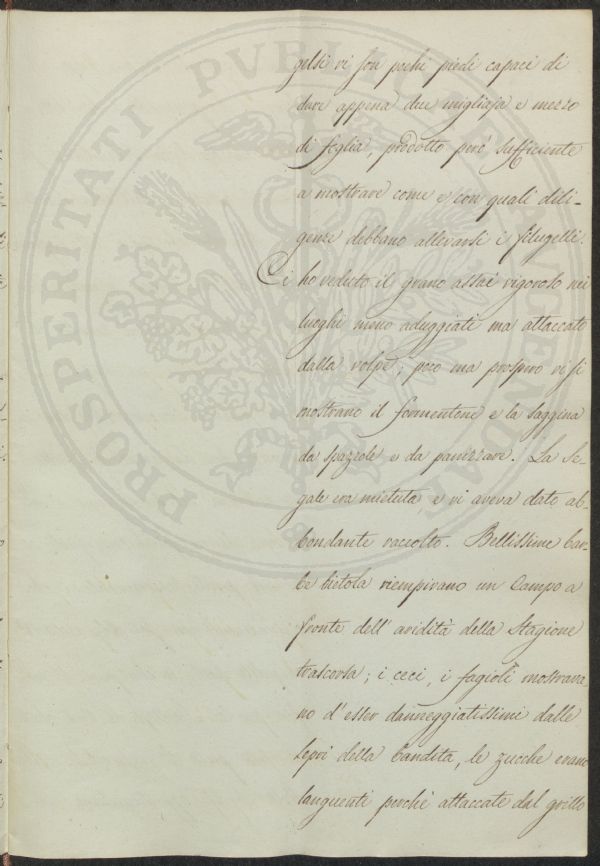 PROSPERITATI PVBLICAE AVGENDAE
gelsi vi son pochi piedi capaci di
dare appena due migliaja e mezzo
di foglia, prodotto però sufficiente
a mostrare come e con quali dili-
genze debbano allevarsi i filugelli.
Ci ho veduto il grano assai vigoroso nei
luoghi meno aduggiati ma attaccato
dalla volpe; poco ma prospero vi si
mostrano il formentone e la saggina
da spazzole e da panizzare. La Se-
gale era mietuta e vi aveva dato ab-
bondante raccolto. Bellissime bar-
be bietola riempivano un Campo a
fronte dell'aridità della Stagione
trascorsa; i ceci, i fagioli mostrava-
no d'esser danneggiatissimi dalle
lepri della bandita, le zucche erano
languenti perchè attaccate dal grillo